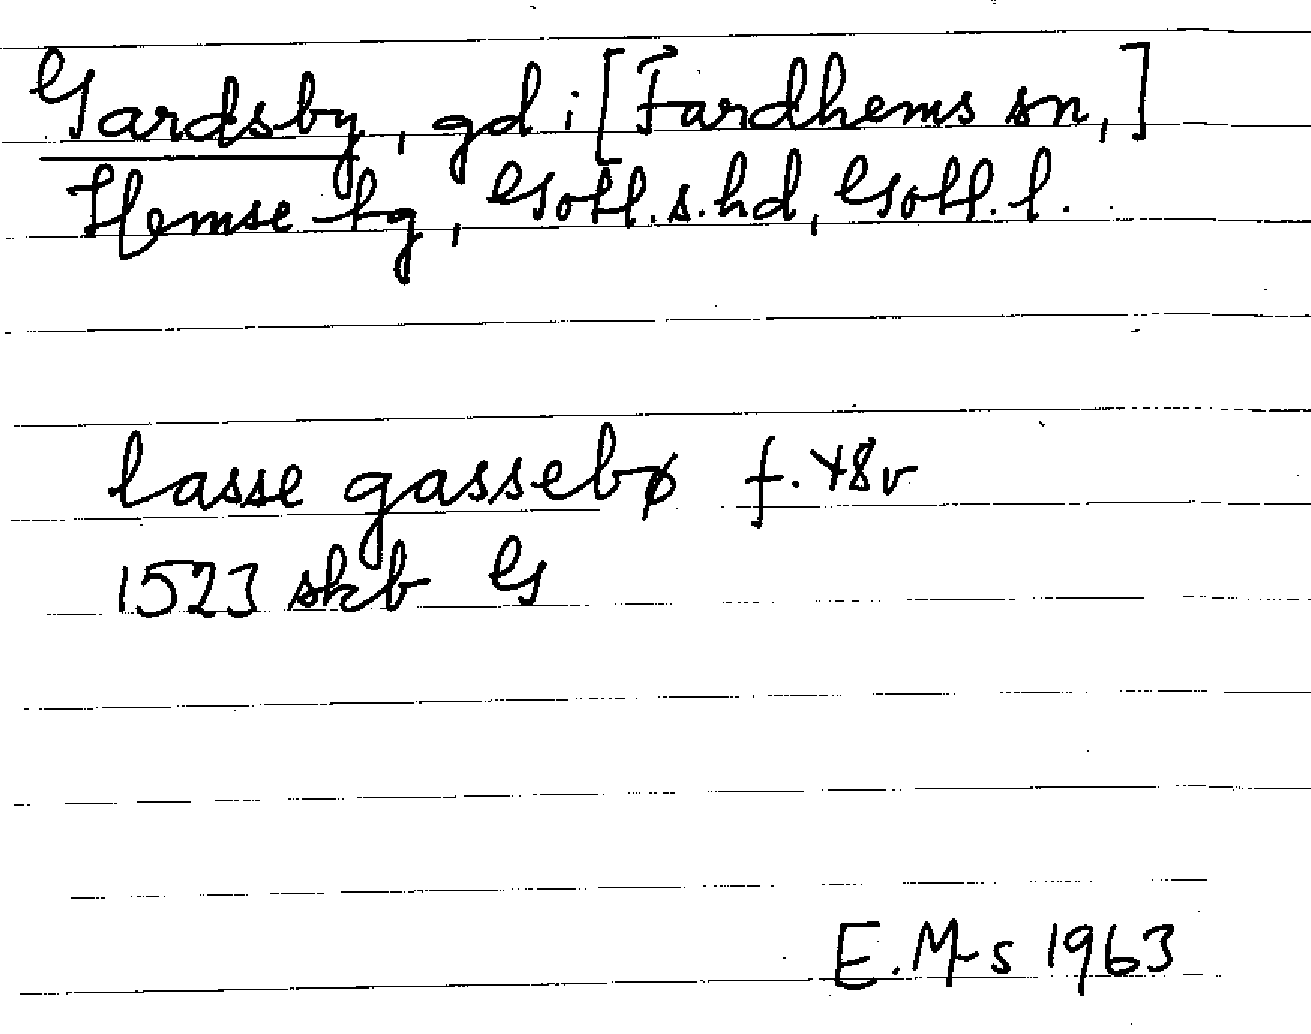 Gardsby, gd i [Fardhems sn,]
Hemse tg, Gotl. s. hd, Gotl. l.
lasse gassebø f. 48v
1523 skb G
E. M-s 1963